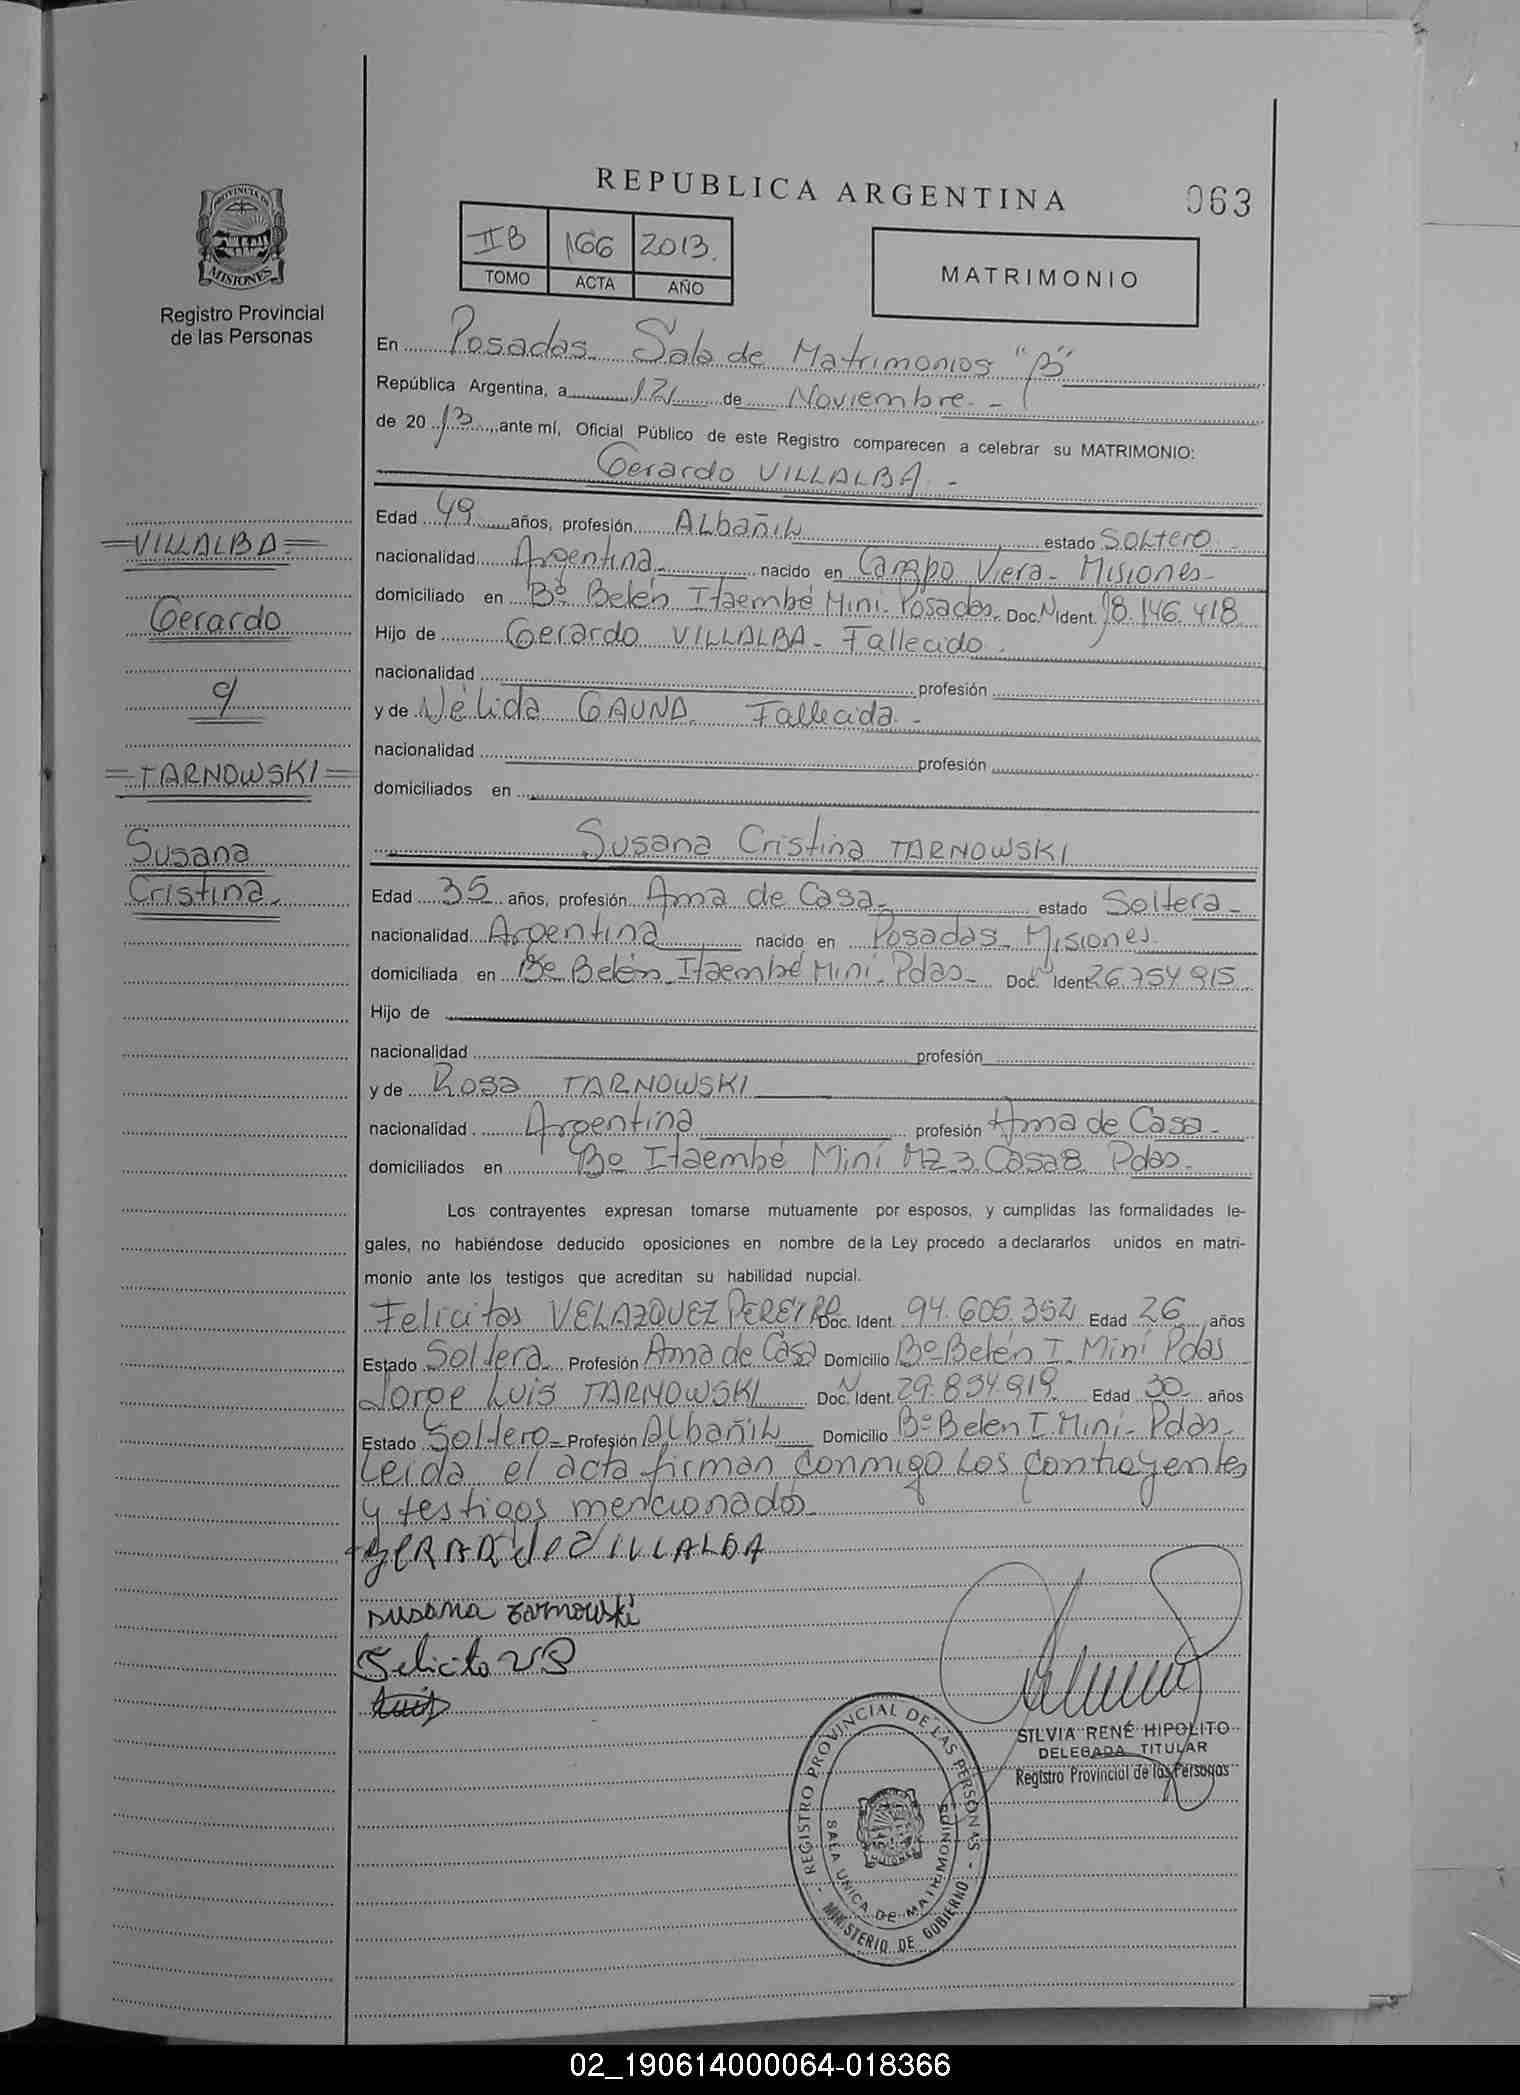 REPUBLICA ARGENTINA
063
PROVINCIA DE
MISIONES
Registro Provincial
de las Personas
IIB 166 2013.
TOMO ACTA AÑO
MATRIMONIO
En Posadas. Sala de Matrimonios "B"
República Argentina, a 12 de Noviembre. -
de 2013, ante mí, Oficial Público de este Registro comparecen a celebrar su MATRIMONIO:
Gerardo VILLALBA. -
=VILLALBA=
Gerardo
c/
=TARNOWSKI=
Susana
Cristina.
Edad 49 años, profesión Albañil estado Soltero. -
nacionalidad Argentina. nacido en Campo Viera - Misiones-
domiciliado en Bº Belén Itaembé Miní. Posadas. Doc. N Ident. 18.146.418
Hijo de Gerardo VILLALBA - Fallecido.
nacionalidad profesión
y de Nélida GAUNA. Fallecida. -
nacionalidad profesión
domiciliados en
Susana Cristina TARNOWSKI
Edad 35 años, profesión Ama de Casa. estado Soltera -
nacionalidad Argentina nacido en Posadas. Misiones.
domiciliada en Bº Belén Itaembé Miní. Pdas - Doc. N Ident. 26.754.915
Hijo de
nacionalidad profesión
y de Rosa TARNOWSKI
nacionalidad Argentina profesión Ama de Casa -
domiciliados en Bº Itaembé Miní MZ 3 Casa 8 Pdas.
Los contrayentes expresan tomarse mutuamente por esposos, y cumplidas las formalidades le-
gales, no habiéndose deducido oposiciones en nombre de la Ley procedo a declararlos unidos en matri-
monio ante los testigos que acreditan su habilidad nupcial.
Felicitas VELAZQUEZ PEREYRA Doc. Ident. 94.605.352 Edad 26 años
Estado Soltera Profesión Ama de Casa Domicilio Bº Belén I. Miní Pdas
Jorge Luis TARNOWSKI Doc. N Ident. 29.834.919 Edad 30 años
Estado Soltero - Profesión Albañil Domicilio Bº Belen I. Miní - Pdas -
Leida el acta firman conmigo los contrayentes
y testigos mencionados
GERARdo VILLALBA
susana tarnowski
Felicita VP
Luis
SILVIA RENÉ HIPOLITO
DELEGADA TITULAR
Registro Provincial de las Personas
REGISTRO PROVINCIAL DE LAS PERSONAS - MINISTERIO DE GOBIERNO -
SALA UNICA DE MATRIMONIO
MISIONES
02_190614000064-018366